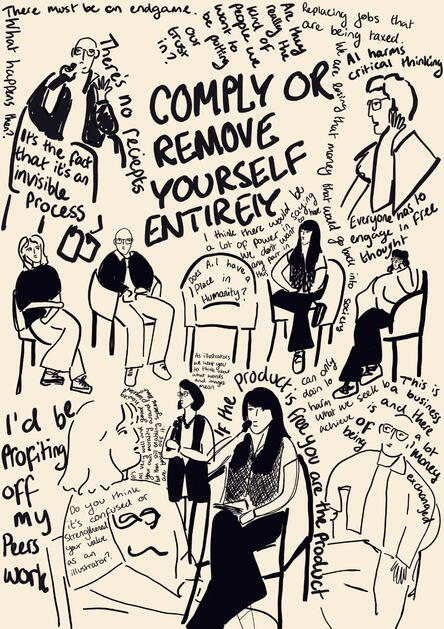 There must be an endgame.
What happens then?
There's no reciepts
It's the fact
that it's an
invisible
process
Are they
really the
kind of
people we
want to
be putting
our
trust
in?
Replacing jobs that
are being taxed.
We are losing that money that would go back into society
AI harms
critical thinking
COMPLY OR
REMOVE
YOURSELF
ENTIRELY
Everyone has to
engage in free
thought
I think there would be
a lot of power saying
we don't want to have
any part in this
Does A.I have a
Place in
Humanity?
As illustrators
we want you
to think about
what words
and images
mean
I'd be
Profiting
off
my
Peers
work
Do you think
it's confused or
strengthened
your value
as an
illustrator?
If the product is free you are the product
can only
harm
what we seek to
achieve
This is a business
and there is
a lot
of money
being
exchanged